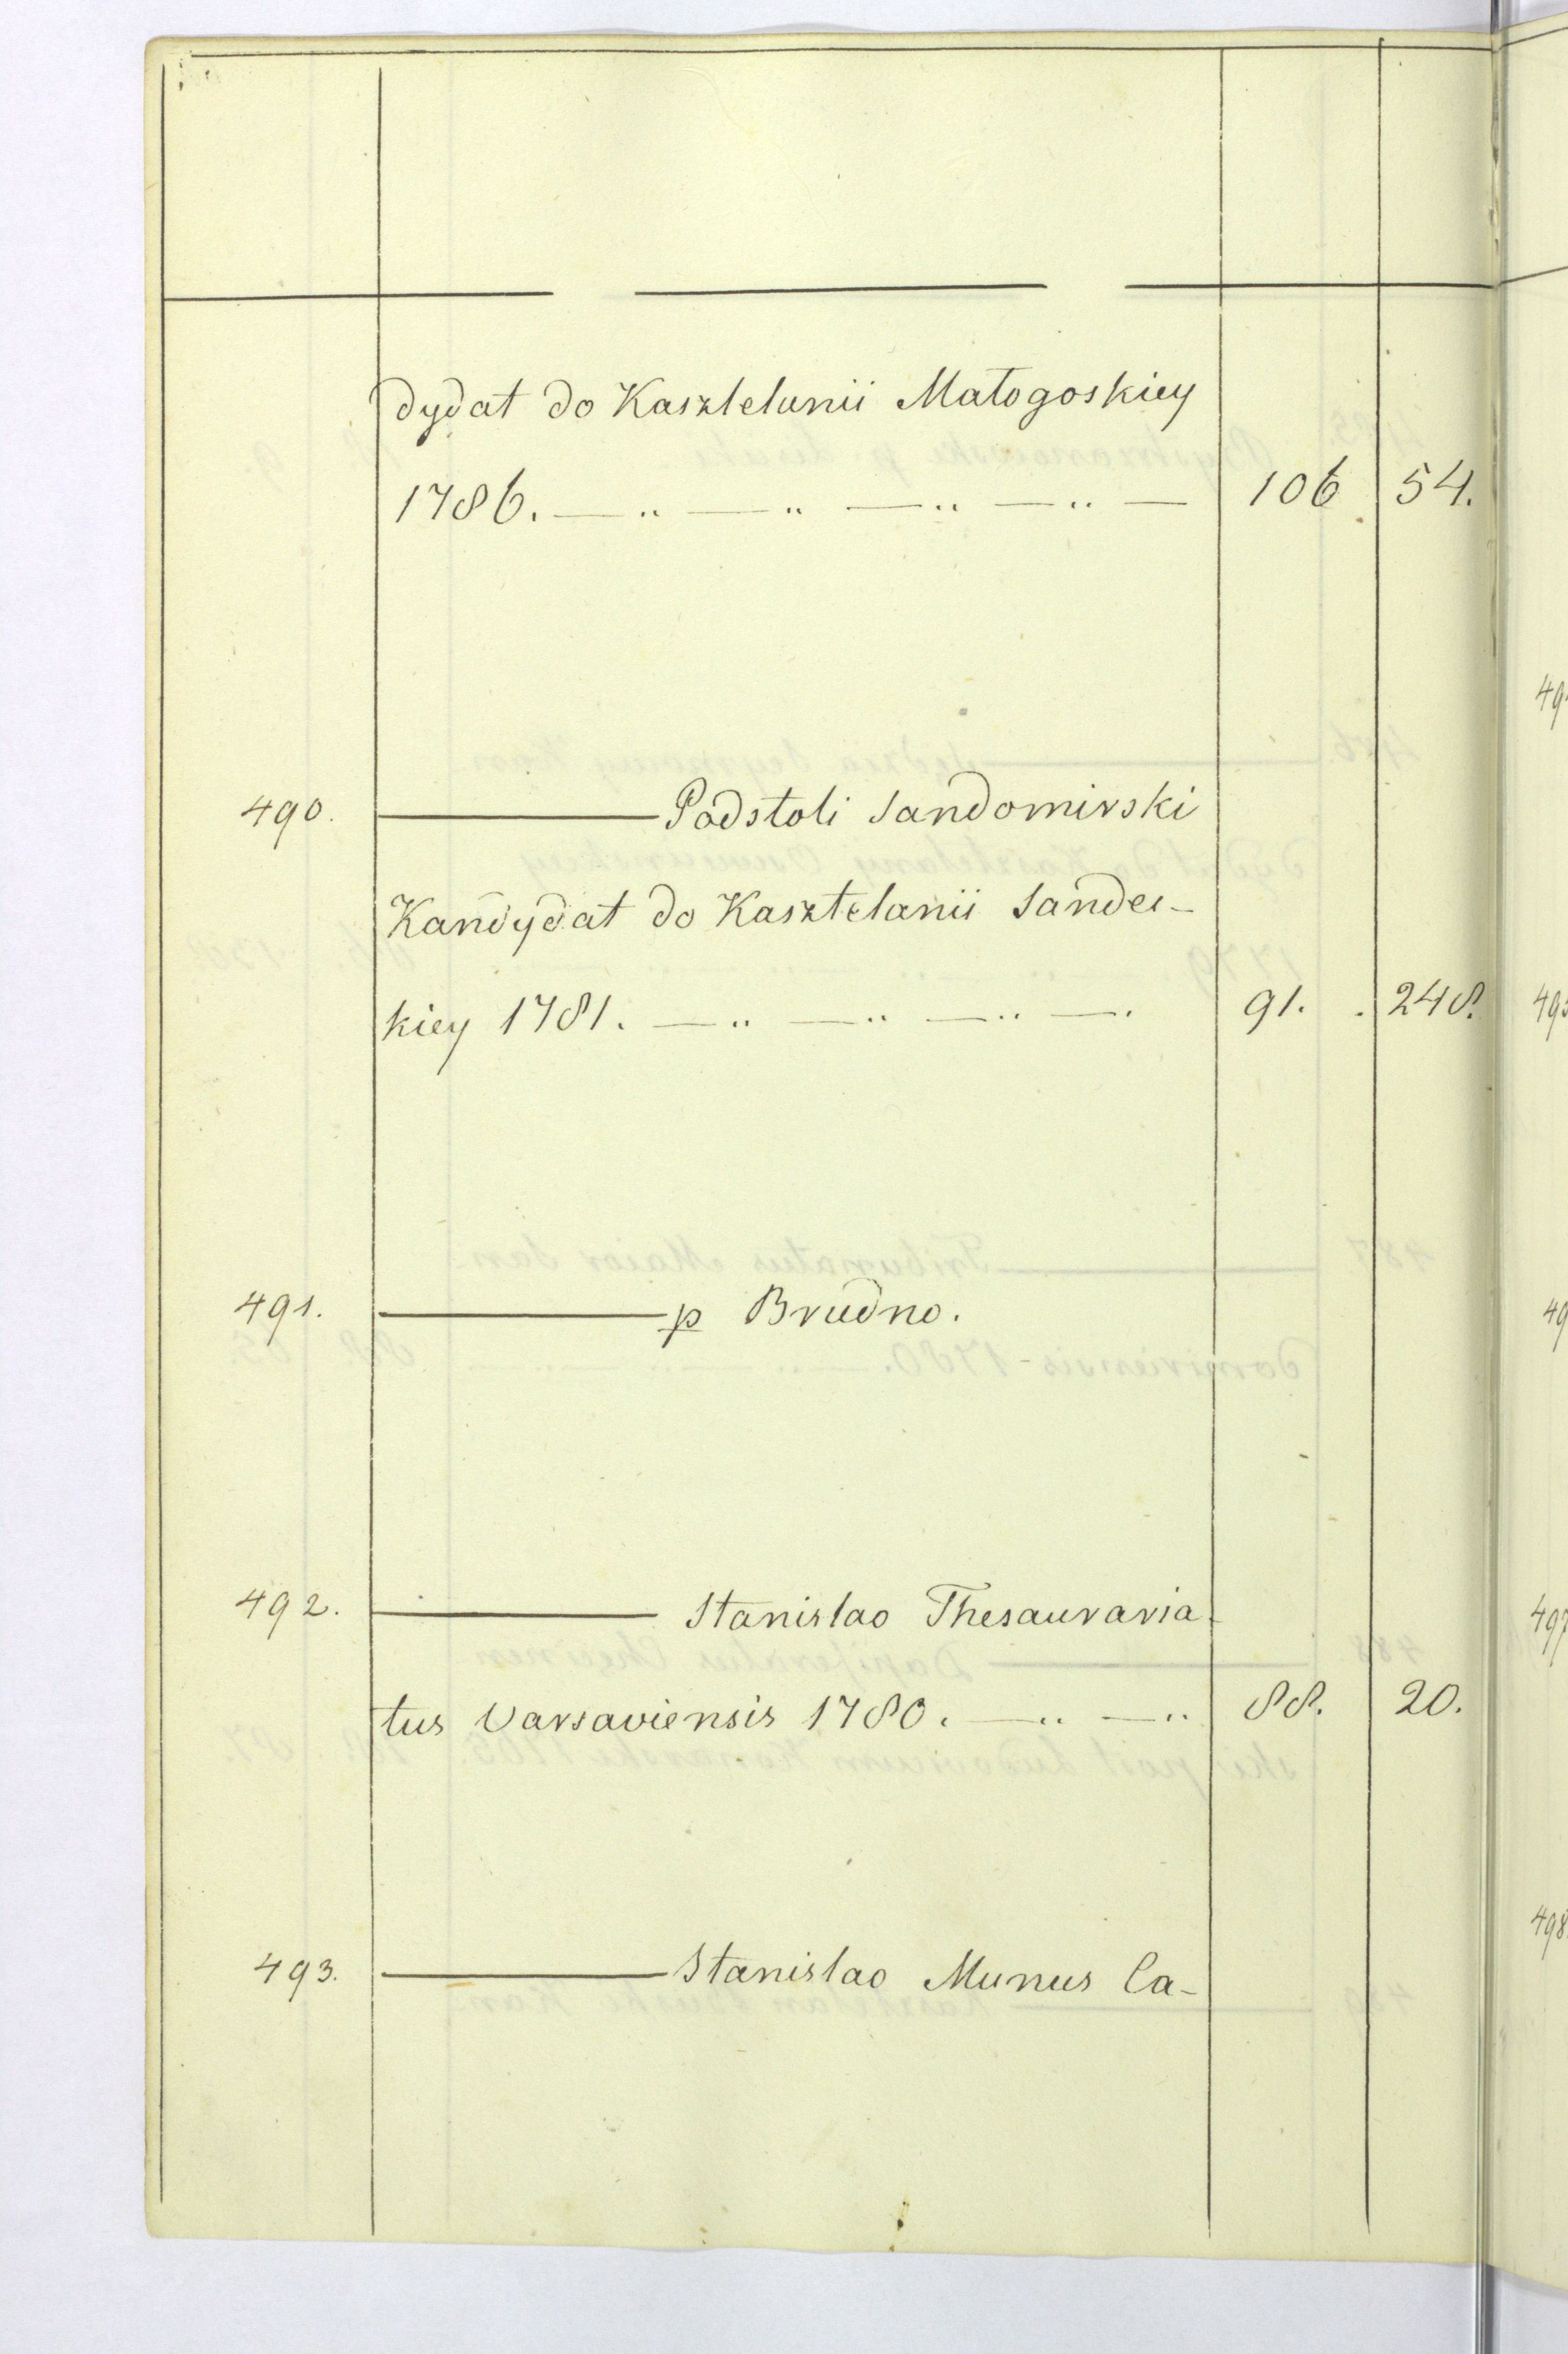 dydat do Kasztelanii Małogoskiey
1786. — „ — „ — „ — „ — 106 54.
490. ——— Podstoli Sandomirski
Kandydat do Kasztelanii Sandec-
kiey 1781. — „ — „ — „ — . 91. 248.
491. ——— p Brudno.
492. ——— Stanislao Thesauraria-
tus Varsaviensis 1780. — „ — „ 88. 20.
493. ——— Stanislao Munus Ca-